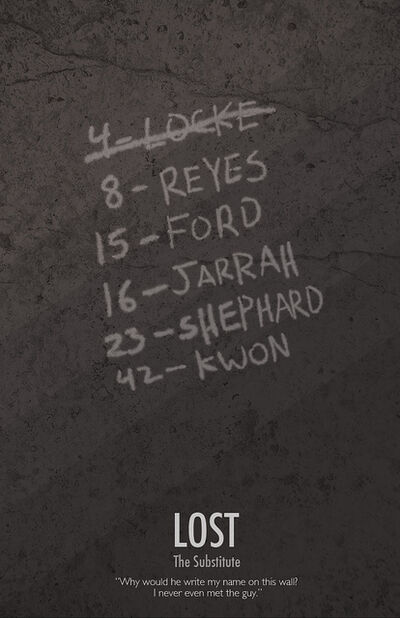 4-LOCKE
8-REYES
15-FORD
16-JARRAH
23-SHEPHARD
42-KWON
LOST
The Substitute
"Why would he write my name on this wall?
I never even met the guy."